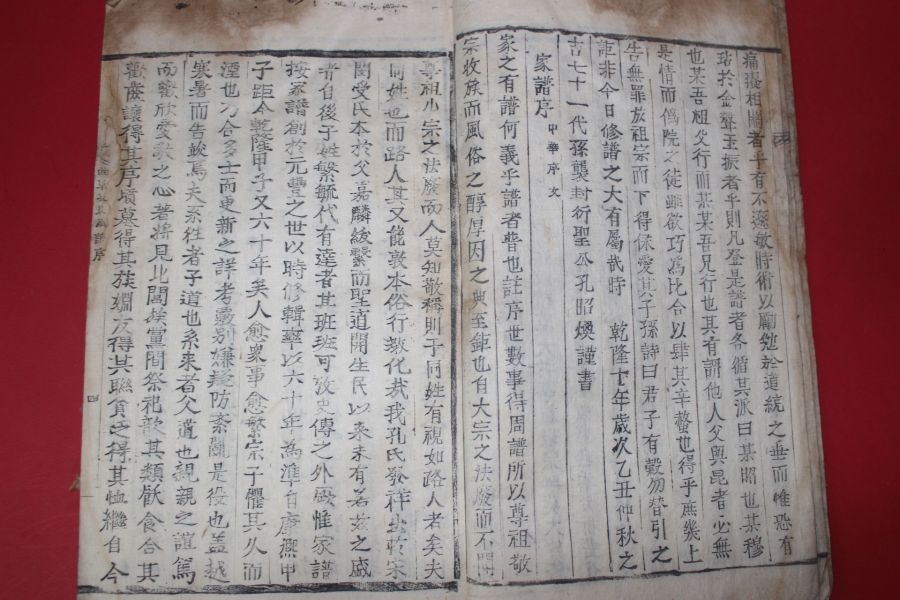 痛癢相關者乎有不逐敏時術以勵勉於道統之垂而惟恐有
玷於金聲玉振者乎則凡登是譜者各循其派曰某昭也某穆
也某吾祖父行而某某吾兄行也其有謂他人父與昆者必無
是情而僞院之徒雖欲巧爲比合以肆其辛螫也得乎庶幾上
告無罪於祖宗而下得保愛其子孫詩曰君子有穀勿替引之
詎非今日修譜之大有屬哉時 乾隆十年歲次乙丑仲秋之
吉七十一代孫襲封衍聖公孔昭煥謹書
家譜序
家之有譜何義乎譜者普也註序世數事得周譜所以尊祖敬
宗收族而風俗之醇厚因之典至鉅也自大宗之法廢而不聞
尊祖小宗之法廢而人莫知敬稱則于同姓有視如路人者矣夫
同姓也而路人其又能敦本俗行敎化哉我孔氏發祥
閔受氏本於父嘉麟綾繫而聖道開生民以來未有若茲之盛
者自後子姓繁毓代有達者其班班可攷史傳之外厥惟家譜
按家譜創於元豐之世以時修輯率以六十年爲準自康熙甲
子距今乾隆甲子又六十年矣人愈衆事愈繁宗子懼其久而
湮也乃合多士而更新之詳考覈別嫌疑防紊亂是役也益越
寒暑而告竣焉夫系往者子道也系來者父道也親親之誼篤
而歡欣愛敬之心著將見比閭族黨間祭祀歆其類飲食合其
歡齒讓得其序填墓得其族婣友得其聯貧乏得其恤繼自今